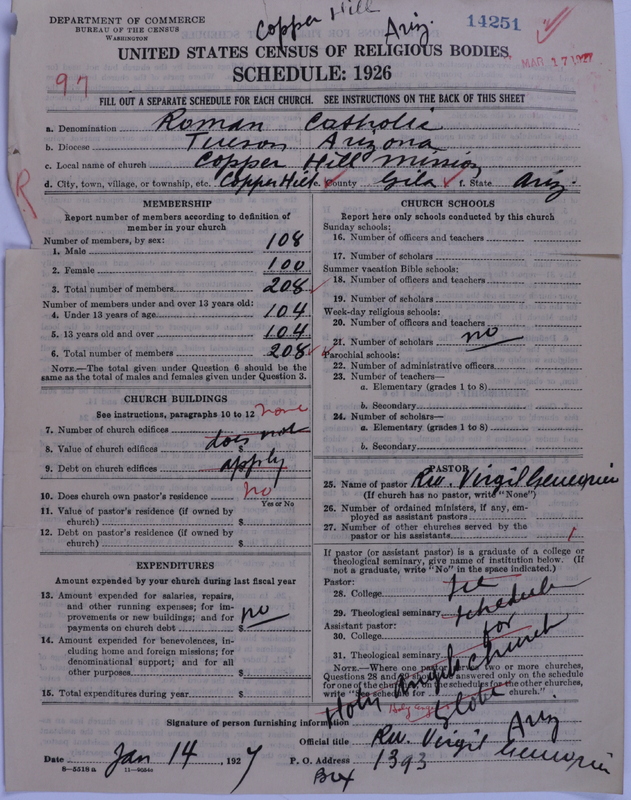 DEPARTMENT OF COMMERCE
BUREAU OF THE CENSUS
WASHINGTON
Copper Hill Ariz.
14251
MAR 17 1927
UNITED STATES CENSUS OF RELIGIOUS BODIES
SCHEDULE: 1926
97
FILL OUT A SEPARATE SCHEDULE FOR EACH CHURCH. SEE INSTRUCTIONS ON THE BACK OF THIS SHEET
a. Denomination Roman Catholic
b. Diocese Tucson Arizona
c. Local name of church Copper Hill Mission
d. City, town, village, or township, etc. Copper Hill e. County Gila f. State Ariz.
R
MEMBERSHIP
Report number of members according to definition of member in your church
Number of members, by sex:
1. Male 108
2. Female 100
3. Total number of members 208
Number of members under and over 13 years old:
4. Under 13 years of age 104
5. 13 years old and over 104
6. Total number of members 208
NOTE.—The total given under Question 6 should be the same as the total of males and females given under Question 3.
CHURCH BUILDINGS
See instructions, paragraphs 10 to 12
7. Number of church edifices none
8. Value of church edifices $ does not
9. Debt on church edifices apply
10. Does church own pastor's residence no
Yes or No
11. Value of pastor's residence (if owned by church) $
12. Debt on pastor's residence (if owned by church) $
EXPENDITURES
Amount expended by your church during last fiscal year
13. Amount expended for salaries, repairs, and other running expenses; for improvements or new buildings; and for payments on church debt $ no
14. Amount expended for benevolences, including home and foreign missions; for denominational support; and for all other purposes $
15. Total expenditures during year $
CHURCH SCHOOLS
Report here only schools conducted by this church
Sunday schools:
16. Number of officers and teachers
17. Number of scholars
Summer vacation Bible schools:
18. Number of officers and teachers
19. Number of scholars
Week-day religious schools:
20. Number of officers and teachers
21. Number of scholars no
Parochial schools:
22. Number of administrative officers
23. Number of teachers—
a. Elementary (grades 1 to 8)
b. Secondary
24. Number of scholars—
a. Elementary (grades 1 to 8)
b. Secondary
PASTOR
25. Name of pastor Rev. Virgil
(If church has no pastor, write "None")
26. Number of ordained ministers, if any, employed as assistant pastors
27. Number of other churches served by the pastor or his assistants 1
If pastor (or assistant pastor) is a graduate of a college or theological seminary, give name of institution below. (If not a graduate, write "No" in the space indicated.)
Pastor:
28. College See
29. Theological seminary schedule
Assistant pastor: for
30. College
31. Theological seminary
Holy Angels church
Globe
NOTE.—Where one pastor serves two or more churches, Questions 28 and 29 should be answered only on the schedule for one of the churches. On the schedules for the other churches, write "See schedule for Holy Angels church."
Signature of person furnishing information
Ariz
Official title Rev. Virgil
Date Jan 14, 1927 P. O. Address Box 1393
8—5518 a 11—9554a